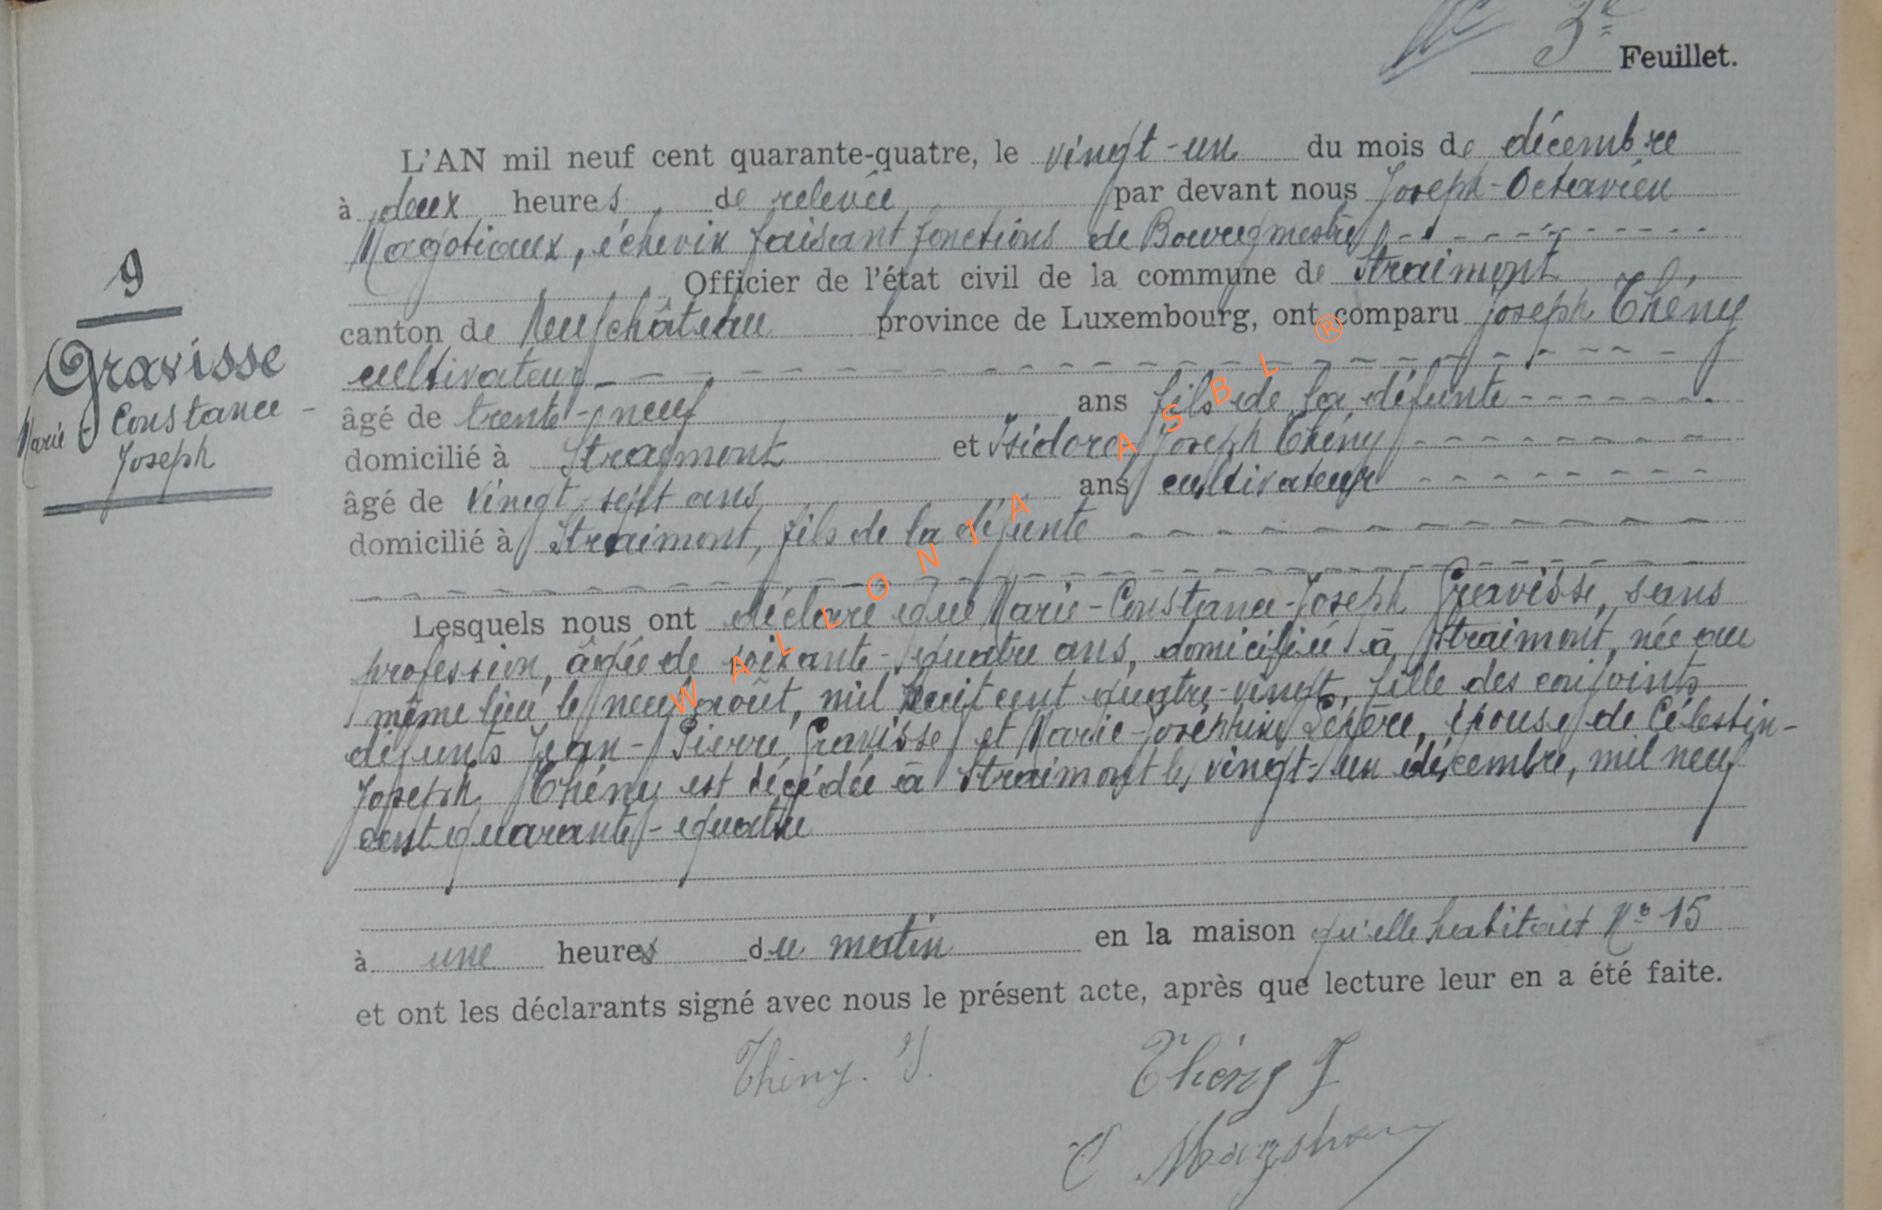 3e Feuillet.
L'AN mil neuf cent quarante-quatre, le vingt-un du mois de décembre
à deux heures de relevée par devant nous Joseph-Octavien
Magotiaux, échevin faisant fonctions de Bourgmestre
Officier de l'état civil de la commune de Straimont
canton de Neufchâteau province de Luxembourg, ont comparu Joseph Thény
cultivateur
âgé de trente-neuf ans fils de la défunte
domicilié à Straymont et Isidore, Joseph Thény
âgé de vingt-sept ans ans cultivateur
domicilié à Straimont, fils de la défunte
Lesquels nous ont déclaré que Marie-Constance-Joseph Gravisse, sans
profession, âgée de soixante-quatre ans, domiciliée à Straimont, née au
même lieu, le neuf août, mil huit cent quatre-vingt, fille des conjoints
défunts Jean-Pierre Gravisse et Marie-Joséphine Lepère, épouse de Célestin-
Joseph Thény est décédée à Straimont le vingt-un décembre, mil neuf
cent quarante-quatre
à une heure du matin en la maison qu'elle habitait No 15
et ont les déclarants signé avec nous le présent acte, après que lecture leur en a été faite.
Thény. I.
Thény J
9
Gravisse
Marie-Constance-
Joseph
WALLONIA ASBL ®